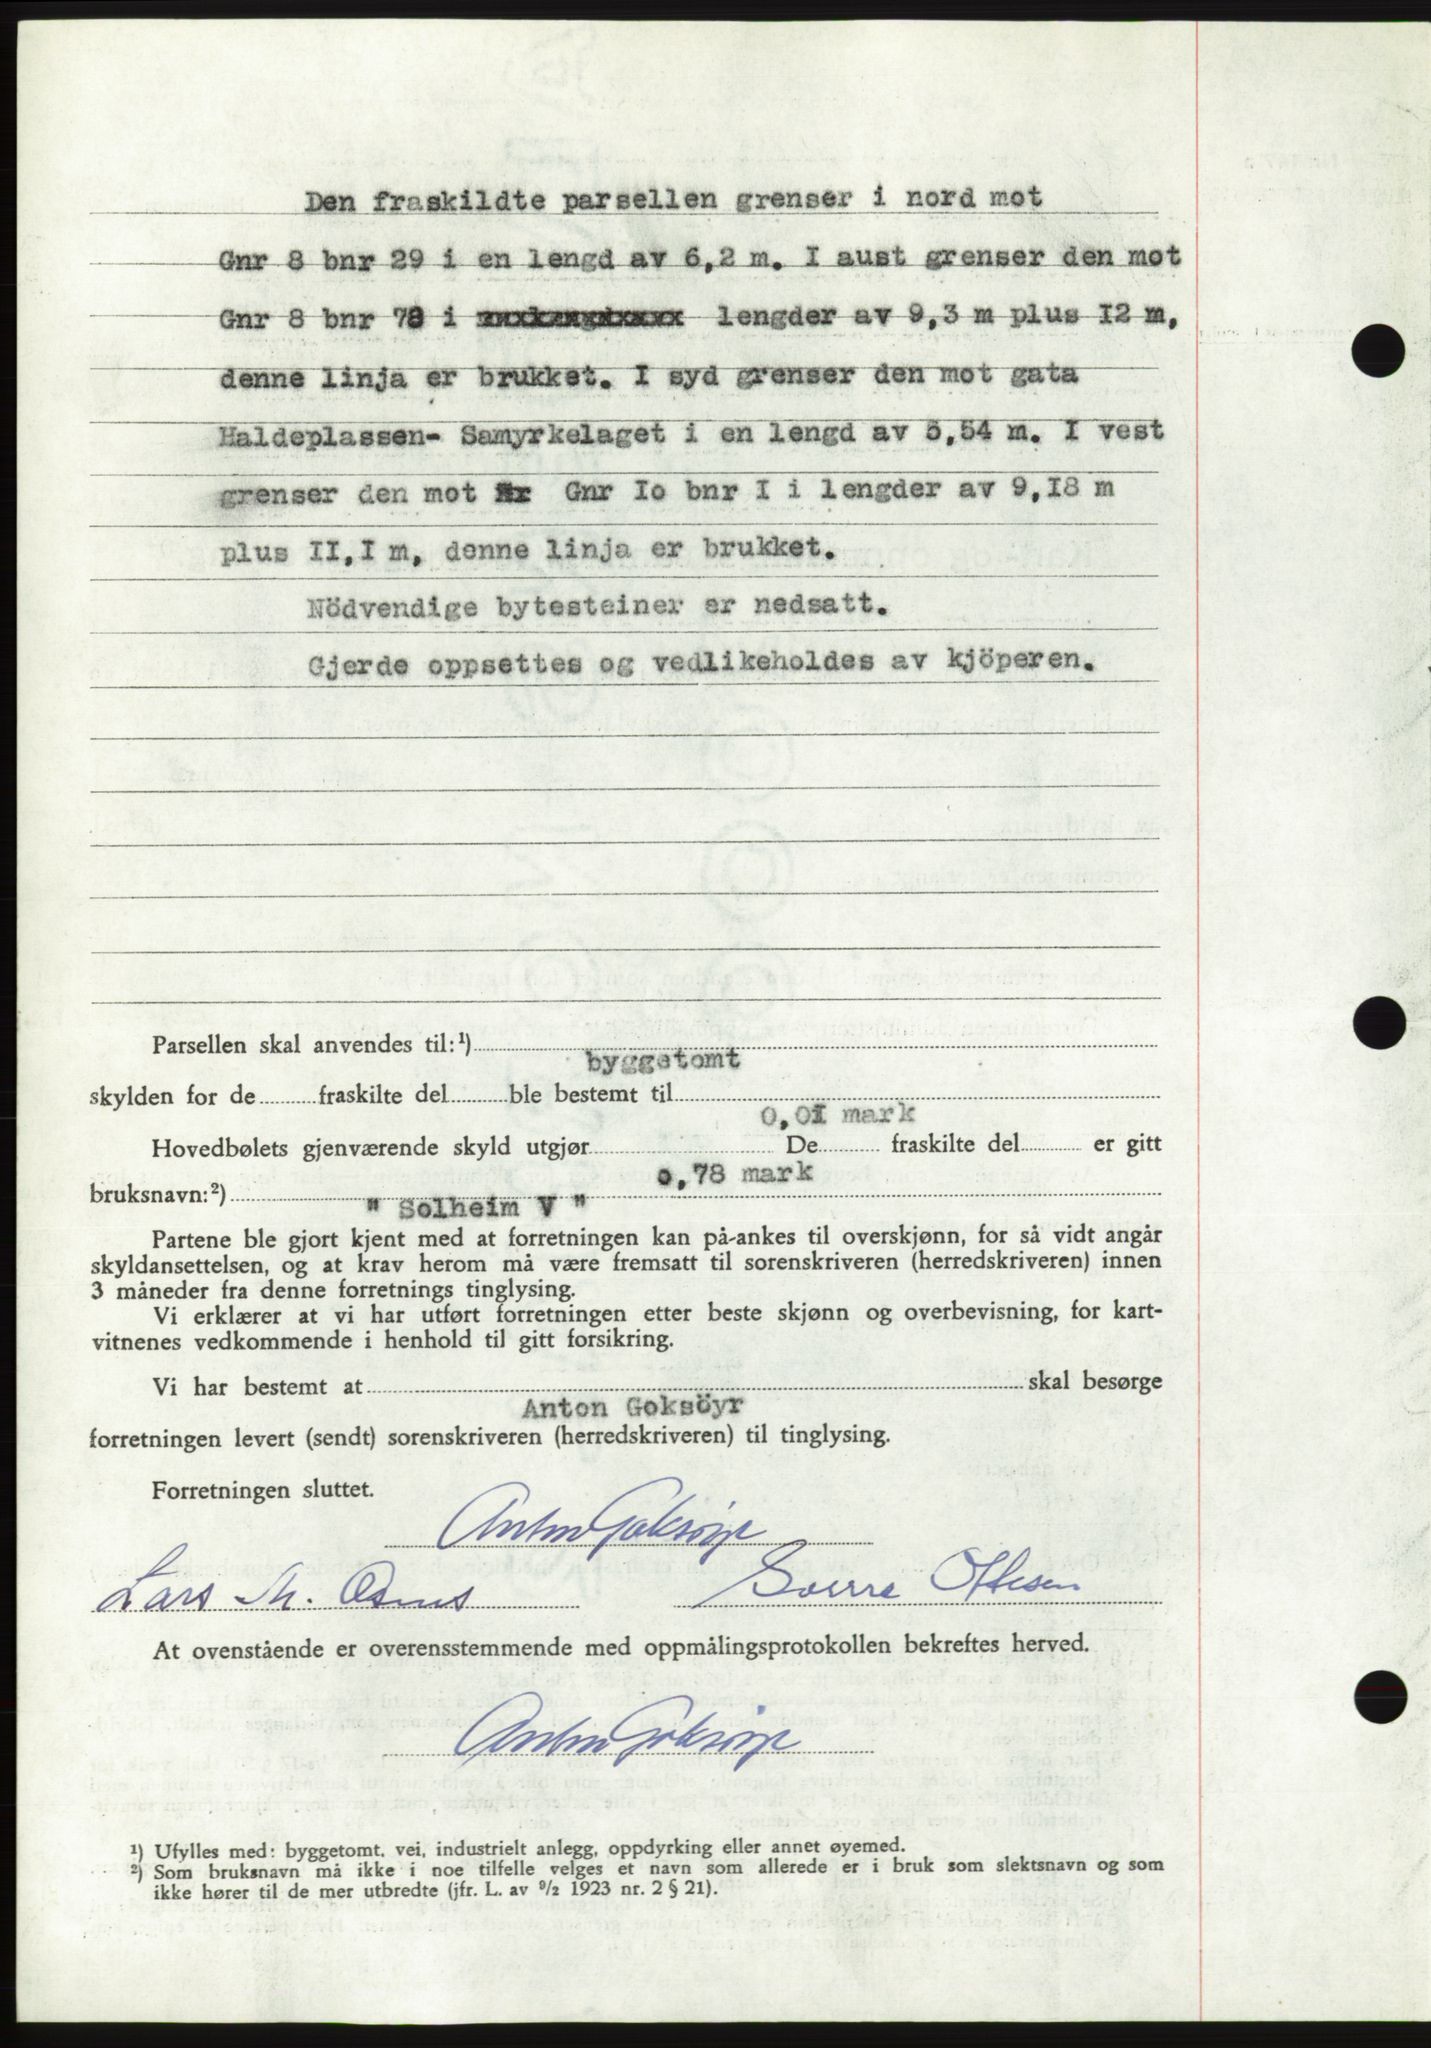 Den fraskildte parsellen grenser i nord mot
Gnr 8 bnr 29 i en lengd av 6,2 m. I aust grenser den mot
Gnr 8 bnr 78 i lengder av 9,3 m plus I2 m,
denne linja er brukket. I syd grenser den mot gata
Haldeplassen- Samyrkelaget i en lengd av 5,54 m. I vest
grenser den mot Gnr Io bnr I i lengder av 9,I8 m
plus II,I m, denne linja er brukket.
Nödvendige bytesteiner er nedsatt.
Gjerde oppsettes og vedlikeholdes av kjöperen.
Parsellen skal anvendes til:¹)
byggetomt
skylden for de fraskilte del ble bestemt til
0,0I mark
Hovedbølets gjenværende skyld utgjør De fraskilte del er gitt
0,78 mark
bruksnavn:²)
" Solheim V "
Partene ble gjort kjent med at forretningen kan på-ankes til overskjønn, for så vidt angår
skyldansettelsen, og at krav herom må være fremsatt til sorenskriveren (herredskriveren) innen
3 måneder fra denne forretnings tinglysing.
Vi erklærer at vi har utført forretningen etter beste skjønn og overbevisning, for kart-
vitnenes vedkommende i henhold til gitt forsikring.
Vi har bestemt at skal besørge
Anton Goksöyr
forretningen levert (sendt) sorenskriveren (herredskriveren) til tinglysing.
Forretningen sluttet.
Anton Goksøyr
Lars M. Osnes Sverre Ottesen
At ovenstående er overensstemmende med oppmålingsprotokollen bekreftes herved.
Anton Goksøyr
¹) Ufylles med: byggetomt, vei, industrielt anlegg, oppdyrking eller annet øyemed.
²) Som bruksnavn må ikke i noe tilfelle velges et navn som allerede er i bruk som slektsnavn og som
ikke hører til de mer utbredte (jfr. L. av ⁹/₂ 1923 nr. 2 § 21).